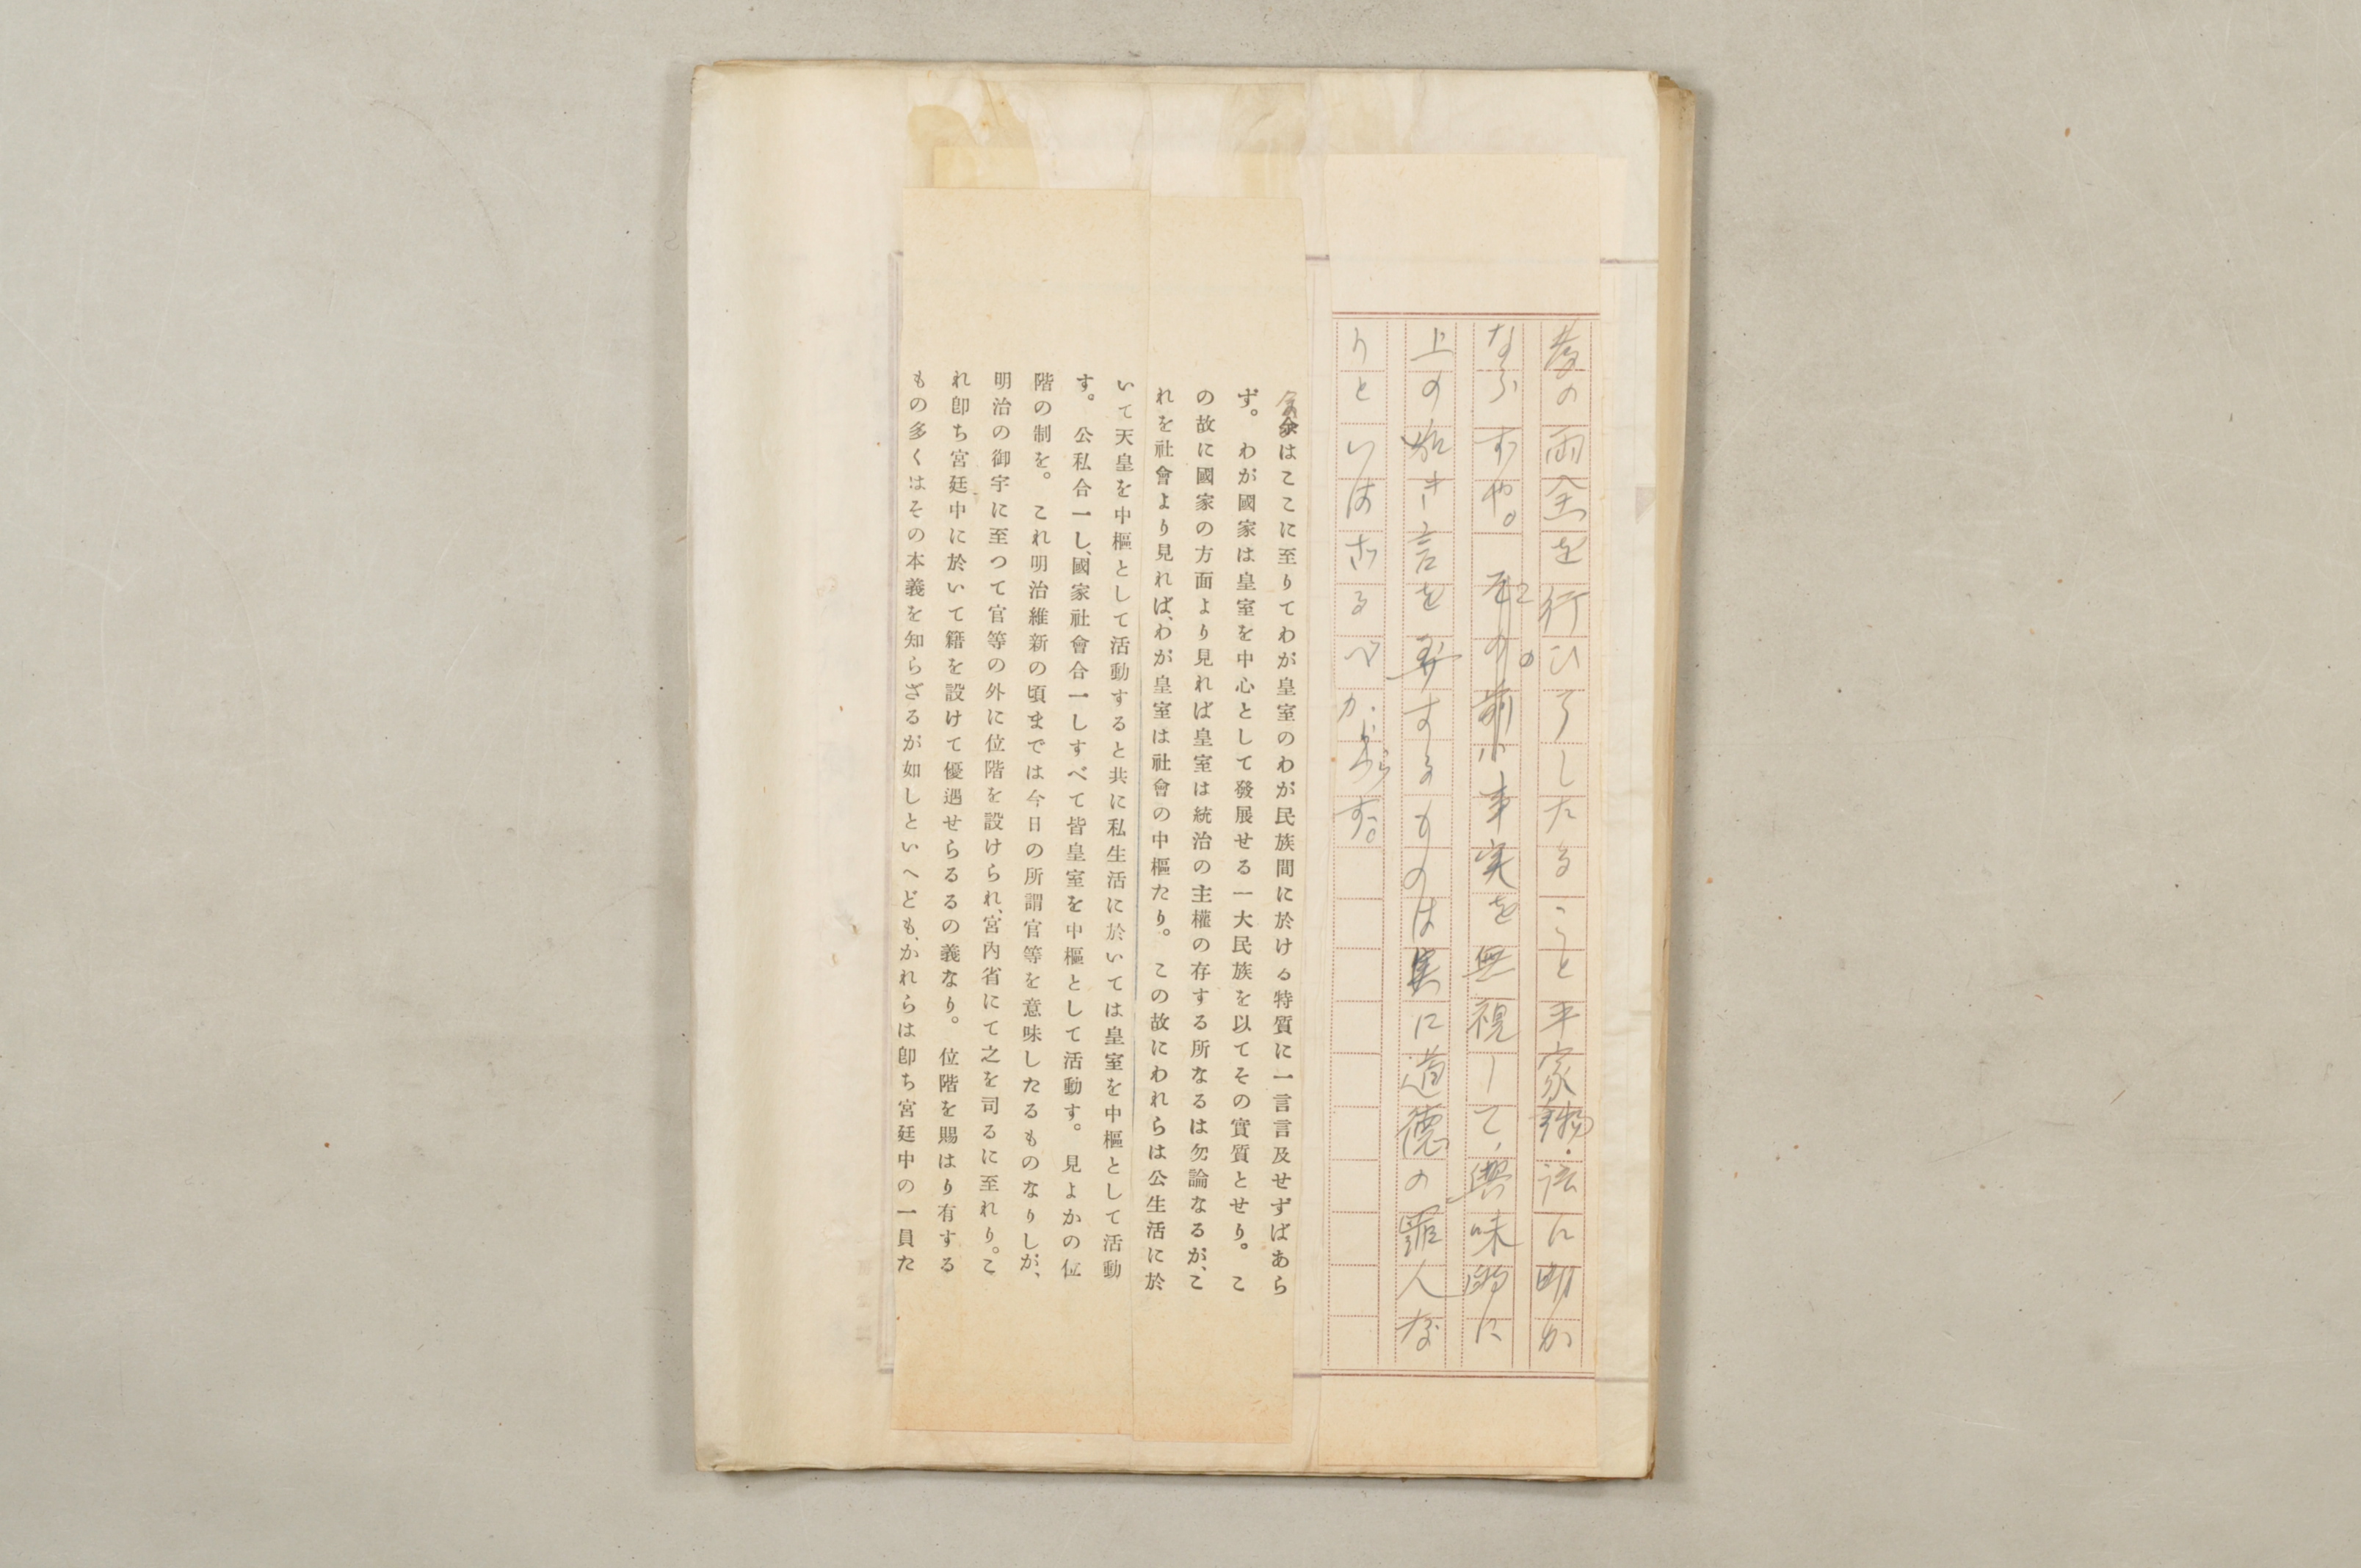 孝の両全を行ひ了したること平家物語に明か
ならずや。この事実を無視して、興味的に
上の如き言を弄するものは実に道徳の罪人な
りといはざるべからず。
余はここに至りてわが皇室のわが民族間に於ける特質に一言言及せずばあら
ず。わが國家は皇室を中心として發展せる一大民族を以てその實質とせり。こ
の故に國家の方面より見れば皇室は統治の主權の存する所なるは勿論なるが、こ
れを社會より見れば、わが皇室は社會の中樞たり。この故にわれらは公生活に於
いて天皇を中樞として活動すると共に私生活に於いては皇室を中樞として活動
す。公私合一し、國家社會合一しすべて皆皇室を中樞として活動す。見よかの位
階の制を。これ明治維新の頃までは今日の所謂官等を意味したるものなりしが、
明治の御宇に至つて官等の外に位階を設けられ、宮內省にて之を司るに至れり。こ
れ卽ち宮廷中に於いて籍を設けて優遇せらるるの義なり。位階を賜はり有する
もの多くはその本義を知らざるが如しといへども、かれらは卽ち宮廷中の一員た